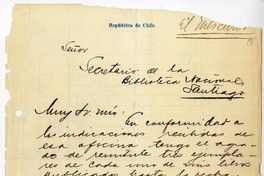 República de Chile
El Mercurio
Señor
Secretario de la
Biblioteca Nacional
Santiago
Muy Sr. mío: En conformidad a
las indicaciones recibidas de
esa oficina, tengo el agra-
do de remitirle tres ejempla-
res de cada uno de mis libros
publicados hasta la fecha